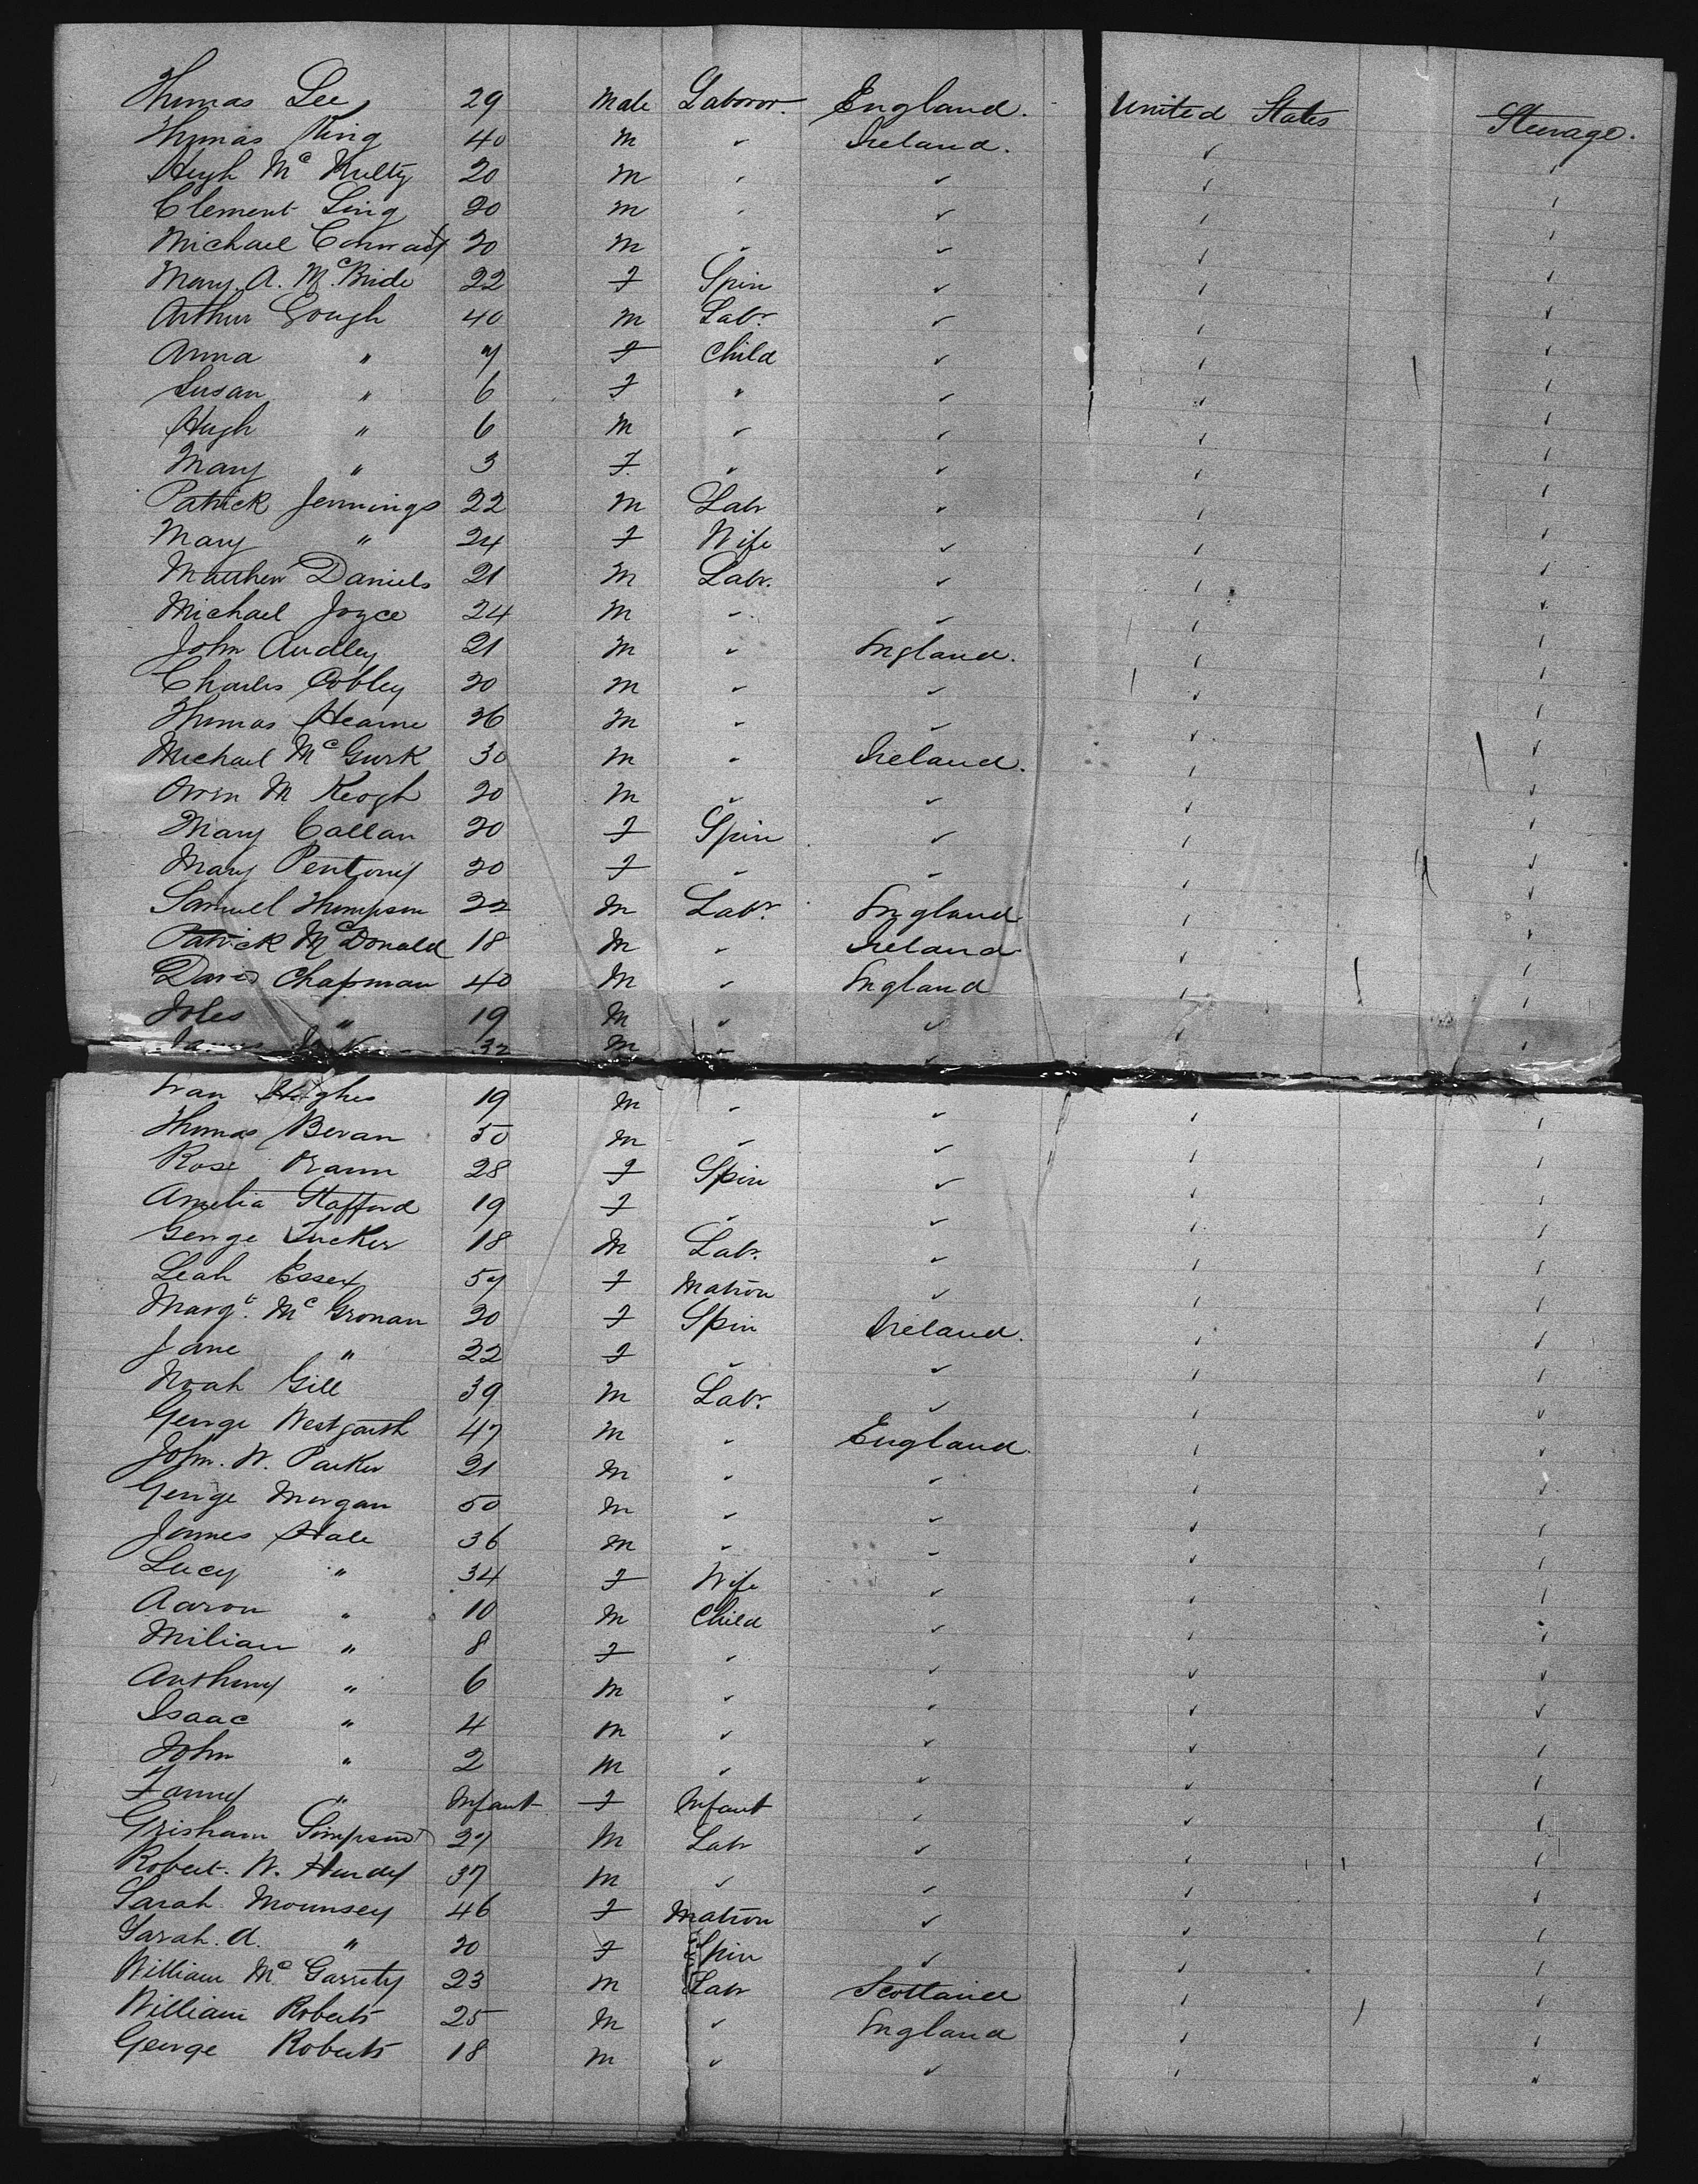 Thomas Lee 29 Male Laborer. England. United States Steerage.
Thomas King 40 M " Ireland. " "
Hugh McNulty 20 M " " " "
Clement Ling 20 M " " " "
Michael Conway 20 M " " " "
Mary A. McBride 22 F Spin " " "
Arthur Gough 40 M Labr. " " "
Anna " 7 F Child " " "
Susan " 6 F " " " "
Hugh " 6 M " " " "
Mary " 3 F " " " "
Patrick Jennings 22 M Labr " " "
Mary " 24 F Wife " " "
Matthew Daniels 21 M Labr. " " "
Michael Joyce 24 M " " " "
John Audley 21 M " England. " "
Charles Cobley 20 M " " " "
Thomas Hearne 26 M " " " "
Michael McGurk 30 M " Ireland. " "
Owen M Keogh 20 M " " " "
Mary Callan 20 F Spin " " "
Mary Pentony 20 F " " " "
Samuel Thompson 22 M Labr. England " "
Patrick McDonald 18 M " Ireland " "
David Chapman 40 M " England " "
Joles " 19 M " " " "
James 32 M " "
Evan Hughes 19 M " " " "
Thomas Bevan 50 M " " " "
Rose 28 F Spin " " "
Amelia Stafford 19 F " " " "
George Tucker 18 M Labr. " " "
Leah Essex 57 F Matron " " "
Margt. McGronan 20 F Spin Ireland. " "
Jane " 22 F " " " "
Noah Gill 39 M Labr. " " "
George Westgarth 47 M " England. " "
John. W. Parker 21 M " " " "
George Morgan 50 M " " " "
James Hale 36 M " " " "
Lucy " 34 F Wife " " "
Aaron " 10 M Child " " "
Miliam " 8 F " " " "
Anthony " 6 M " " " "
Isaac " 4 M " " " "
John " 2 M " " " "
Fanny " Infant F Infant " " "
Grisham Simpson 27 M Labr " " "
Robert. W. Hardy 37 M " " " "
Sarah Mounsey 46 F Matron " " "
Sarah. A. " 20 F Spin " " "
William McGarrity 23 M Labr Scotland " "
William Roberts 25 M " England " "
George Roberts 18 M " " " "